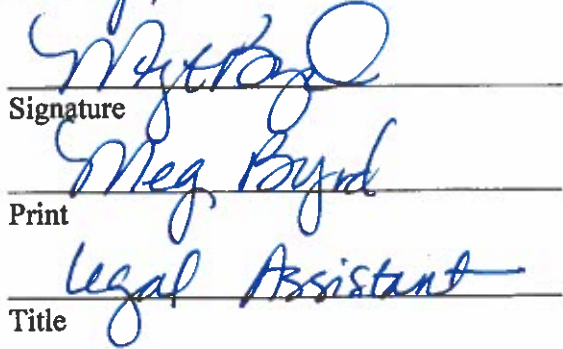 Signature
Meg Byrd
Print
Legal Assistant
Title